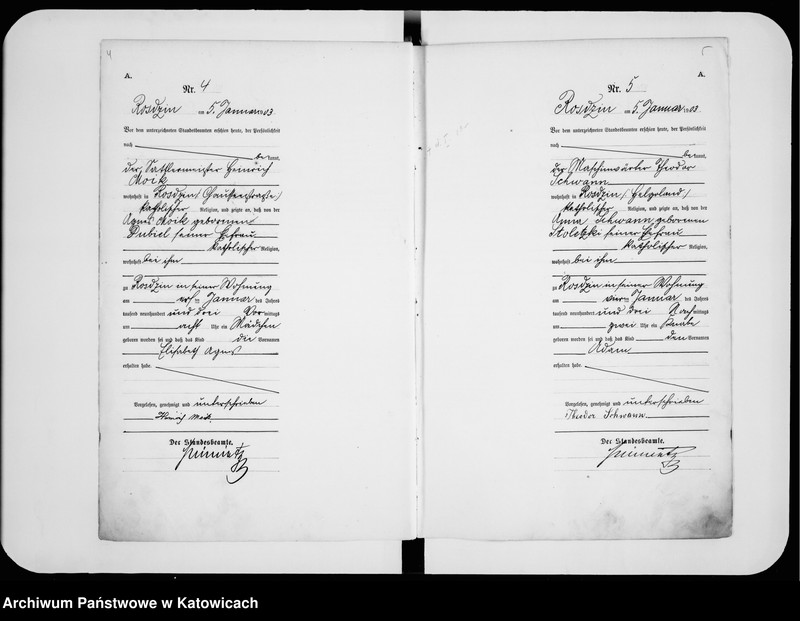 4
A.
Nr. 4
Rosdzin am 5. Januar 1903
Vor dem unterzeichneten Standesbeamten erschien heute, der Persönlichkeit
nach
be kannt,
der Sattlermeister Heinrich
Moik
wohnhaft in Rosdzin
katholischer Religion, und zeigte an, daß von der
Agnes Moik geborenen
Dubiel seiner Ehefrau
katholischer Religion,
wohnhaft bei ihm
zu Rosdzin in seiner Wohnung
am Januar des Jahres
tausend neunhundert und drei Vor mittags
um acht Uhr ein Mädchen
geboren worden sei und daß das Kind die Vornamen
Elisabeth Agnes
erhalten habe.
Vorgelesen, genehmigt und unterschrieben
Heinrich Moik
Der Standesbeamte.
5
A.
Nr. 5
Rosdzin am 5. Januar 1903
Vor dem unterzeichneten Standesbeamten erschien heute, der Persönlichkeit
nach
be kannt,
der Maschinenwärter Theodor
Schwann
wohnhaft in Rosdzin (Helgoland)
katholischer Religion, und zeigte an, daß von der
Anna Schwann geborenen
seiner Ehefrau
katholischer Religion,
wohnhaft bei ihm
zu Rosdzin in seiner Wohnung
am Januar des Jahres
tausend neunhundert und drei Nach mittags
um zwei Uhr ein Knabe
geboren worden sei und daß das Kind den Vornamen
Adam
erhalten habe.
Vorgelesen, genehmigt und unterschrieben
Theodor Schwann
Der Standesbeamte.
Archiwum Państwowe w Katowicach